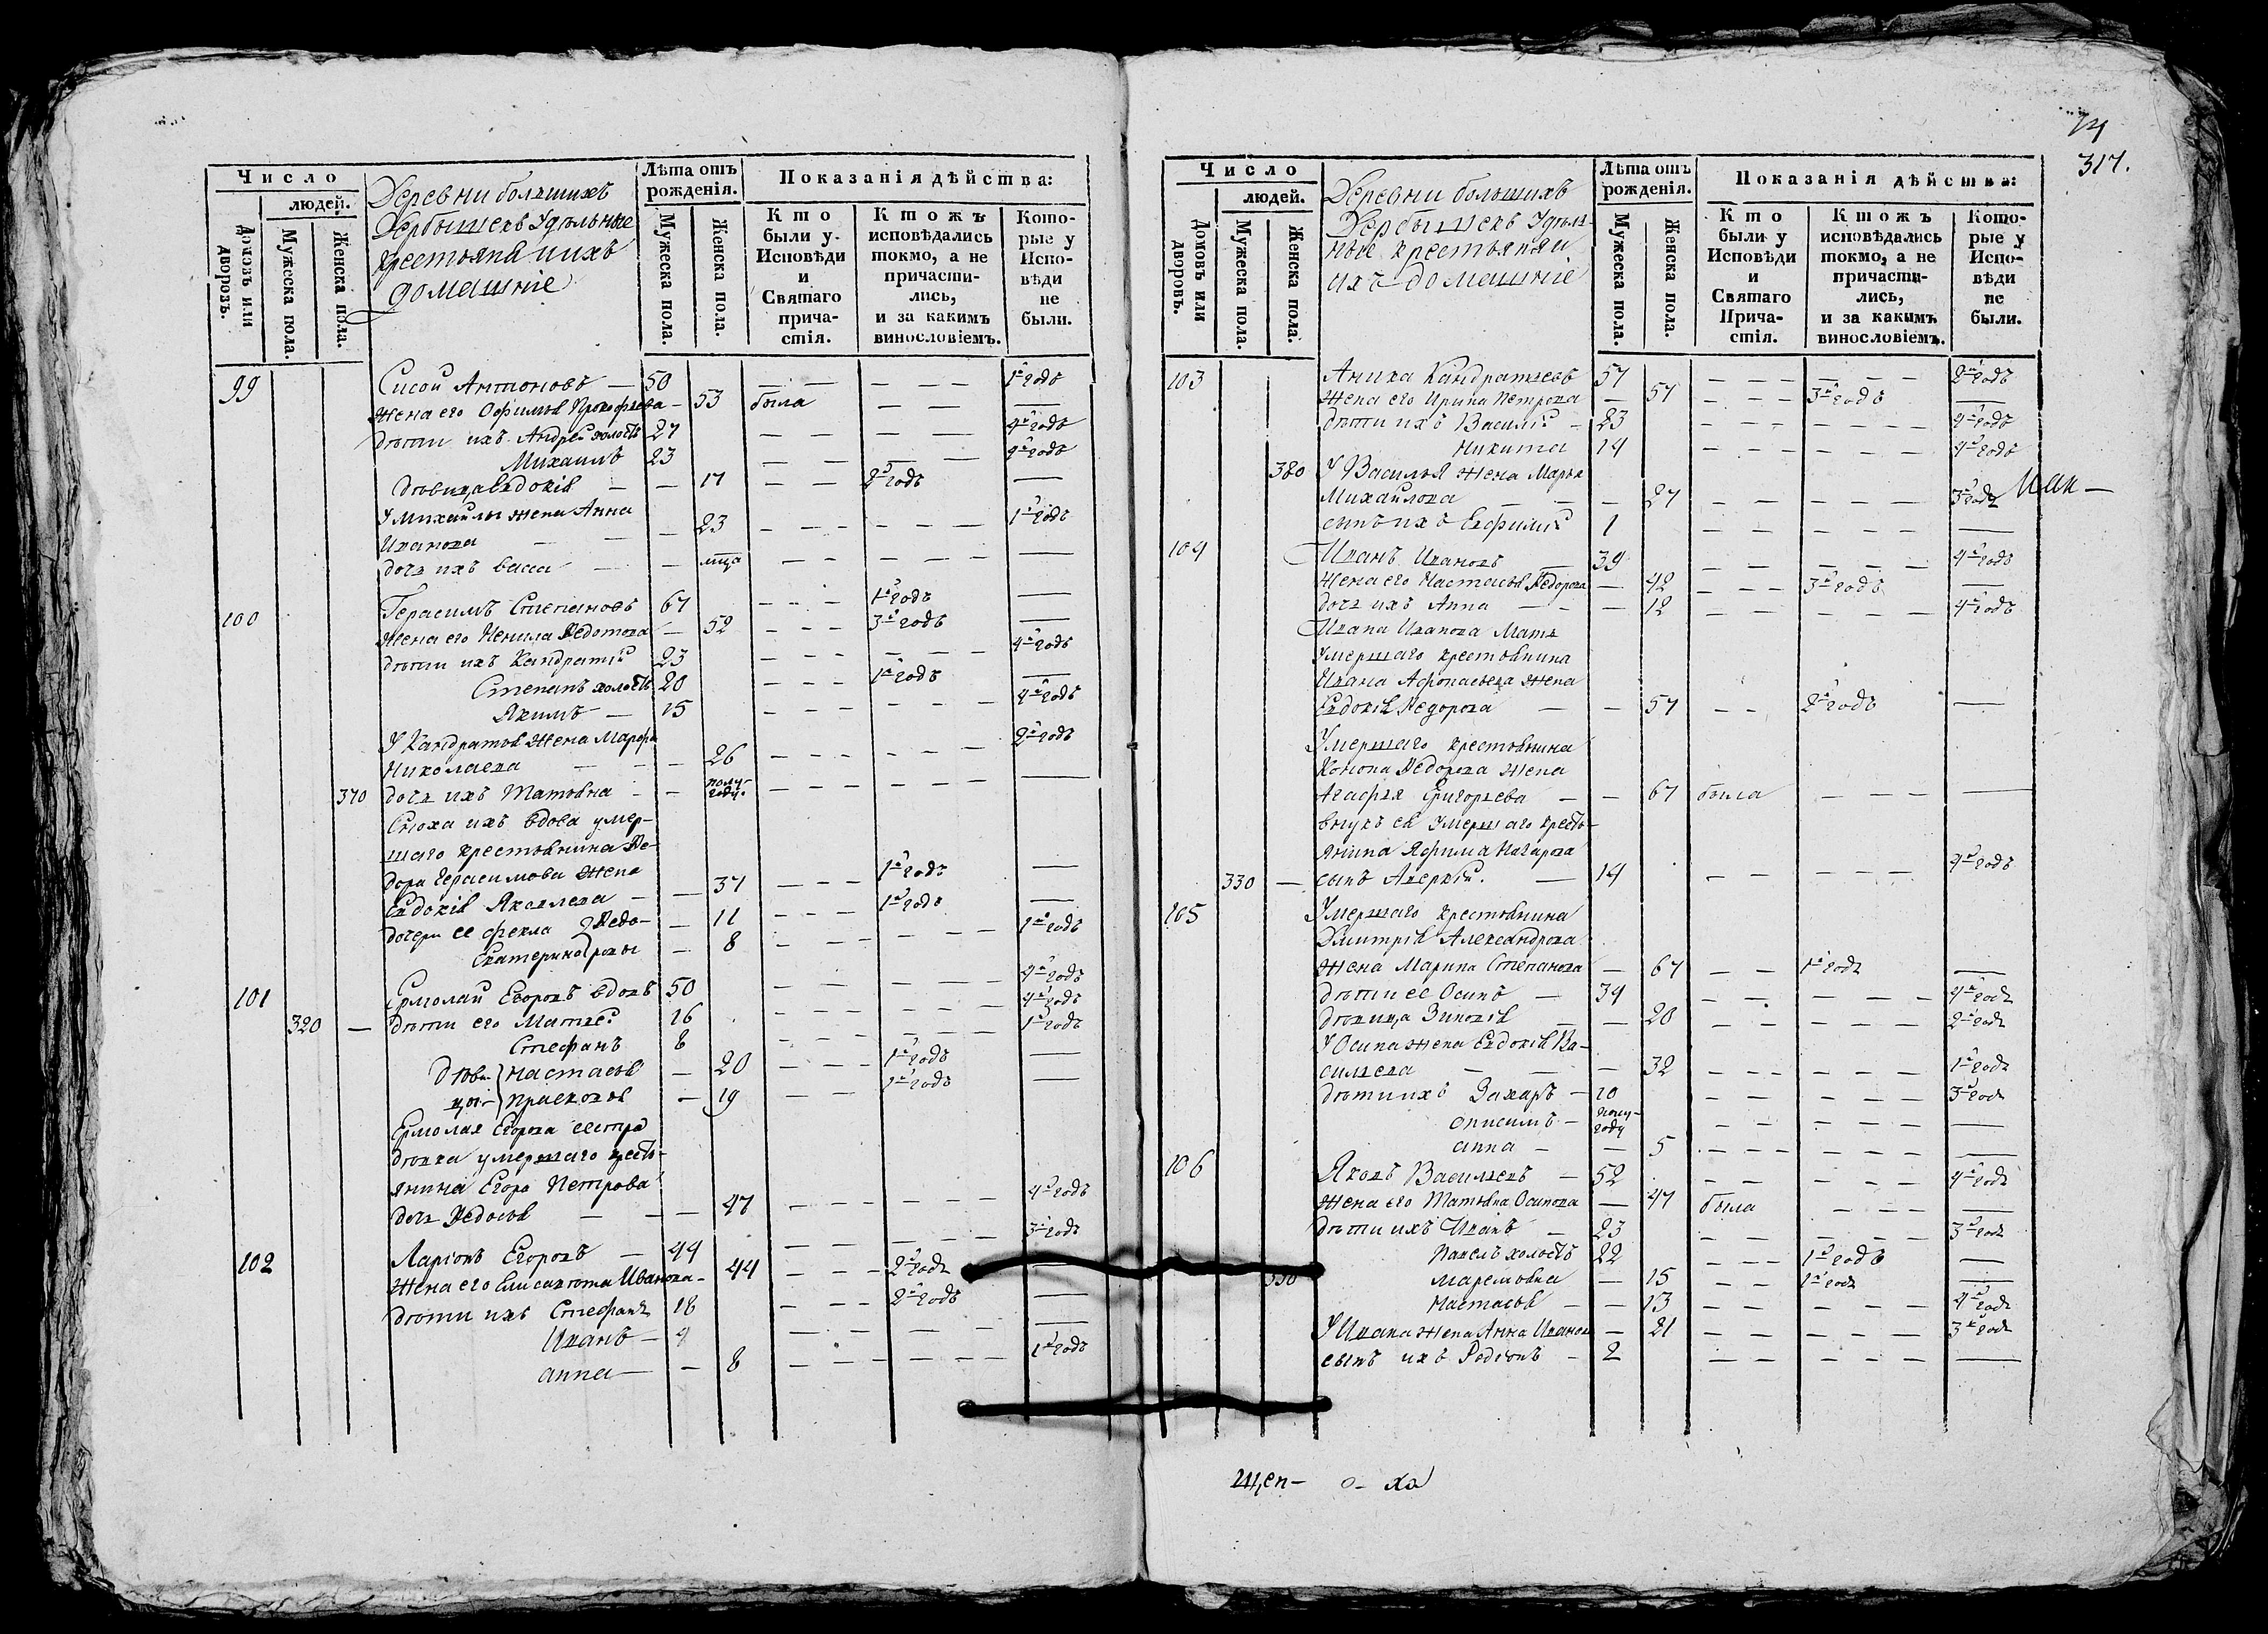 Число
людей.
Домовъ или дворовъ.
Мужеска пола.
Женска пола.
Деревни большихъ
Дербышевъ Удѣльные
крестьяня ихъ
домашніе
Лѣта отъ рожденія.
Мужеска пола.
Женска пола.
Показанія дѣйства:
Кто были у Исповѣди и Святаго причастія.
Ктожъ исповѣдались токмо, а не причастились, и за какимъ винословіемъ.
Которые у Исповѣди не были.
99 Сисой Антоновъ — 50 — — — — — 1й годъ
жена его Офимья Прокофьева — 53 была — — —
дѣти ихъ Андрей холостъ 27 — — — — — 4й годъ
Михаилъ 23 — — — — —
дѣвица Евдокія — — 17 — — 2й годъ —
У Михайлы жена Анна
Иванова — — — 23 — — — — — 1й годъ
дочь ихъ Васса — — мца — — — — — —
100 Герасимъ Степановъ 67 — — — 1й годъ —
жена его Ненила Ѳедотова — 52 — — — 3й годъ —
дѣти ихъ Кандратій 23 — — — — — — 4й годъ
Степанъ холостъ 20 — — — 1й годъ —
Якимъ — 15 — — — — — — 4й годъ
У Кандратья жена Марфа
Николаева — — — 26 — — — — — — 2й годъ
370 дочь ихъ Татьяна — — полугоду. — — — — — — —
Сноха ихъ вдова умер-
шаго крестьянина Ѳе-
дора Герасимова жена
Евдокія Яковлева — — 37 — — — 1й годъ —
дочери ее Фекла } Ѳедо- — 11 — — — 1й годъ —
Екатерина } ровы — 8 — — — — — — 1й годъ
101 Ермолай Егоровъ вдовъ 50 — — — — — —
320 — дѣти его Матвей 16 — — — — — — 4й годъ
Стефанъ 8 — — — — — — 1й годъ
Дѣви- } Настасья — 20 — — — 1й годъ —
цы } Прасковья — 19 — — 1й годъ —
Ермолая Егорова сестра
дѣвка умершаго кресть-
янина Егора Петрова
дочь Ѳедосья — — — 47 — — — — — — 4й годъ
102 Ларіонъ Егоровъ — 44 — — — — — — 3й годъ
жена его Елисавета Иванова — 44 — — — 2й годъ —
дѣти ихъ Стефанъ 18 — — — 2й годъ —
Иванъ — 4 — — — — — — —
Анна — — 8 — — — — — — 1й годъ
317.
Число
людей.
Домовъ или дворовъ.
Мужеска пола.
Женска пола.
Деревни большихъ
Дербышевъ Удѣль-
ные крестьяня и
ихъ домашніе
Лѣта отъ рожденія.
Мужеска пола.
Женска пола.
Показанія дѣйства:
Кто были у Исповѣди и Святаго Причастія.
Ктожъ исповѣдались токмо, а не причастились, и за какимъ винословіемъ.
Которые у Исповѣди не были.
103 Аника Кандратьевъ 57 — — — — — — 2й годъ
жена его Ирина Петрова — 57 — — — 3й годъ —
дѣти ихъ Василій — 23 — — — — — —
Никита 14 — — — — — — 4й годъ
380 У Василья жена Марья
Михайлова — — — 27 — — — — — — 3й годъ
сынъ ихъ Евфимій 1 — — — — — — —
104 Иванъ Ивановъ — 39 — — — — — — 4й годъ
жена его Настасья Ѳедорова — 42 — — — 3й годъ —
дочь ихъ Анна — — — 12 — — — — — 4й годъ
Ивана Иванова мать
умершаго крестьянина
Ивана Афонасьева жена
Евдокія Ѳедорова — — 57 — — 2й годъ —
Умершаго крестьянина
Конона Ѳедорова жена
Агафья Григорьева — — 67 была — — — —
внукъ ея умершаго кресть-
янина
330 — сынъ Аверкій. — 14 — — — — — —
105 Умершаго крестьянина
Дмитрія Александрова
жена Марина Степанова — 67 — — 1й годъ —
дѣти ее Осипъ — 34 — — — — — — 4й годъ
дѣвица Зиновія — — 20 — — — — — 2й годъ
У Осипа жена Евдокія Ва-
сильева — — — 32 — — — — — — 1й годъ
дѣти ихъ Захаръ — 10 — — — — — 3й годъ
Онисимъ — полугоду — — — — — — —
Анна — — 5 — — — — — — —
106 Яковъ Васильевъ — 52 — — — — — — 4й годъ
жена его Татьяна Осипова — 47 была — — — —
дѣти ихъ Иванъ — 23 — — — — — — 3й годъ
Павелъ холостъ 22 — — — 1й годъ —
— 15 — — 1й годъ —
Настасья — — 13 — — — — — — 4й годъ
У Ивана жена Анна Иванова — 21 — — — — — — 3й годъ
сынъ ихъ Родіонъ — 2 — — — — — — —